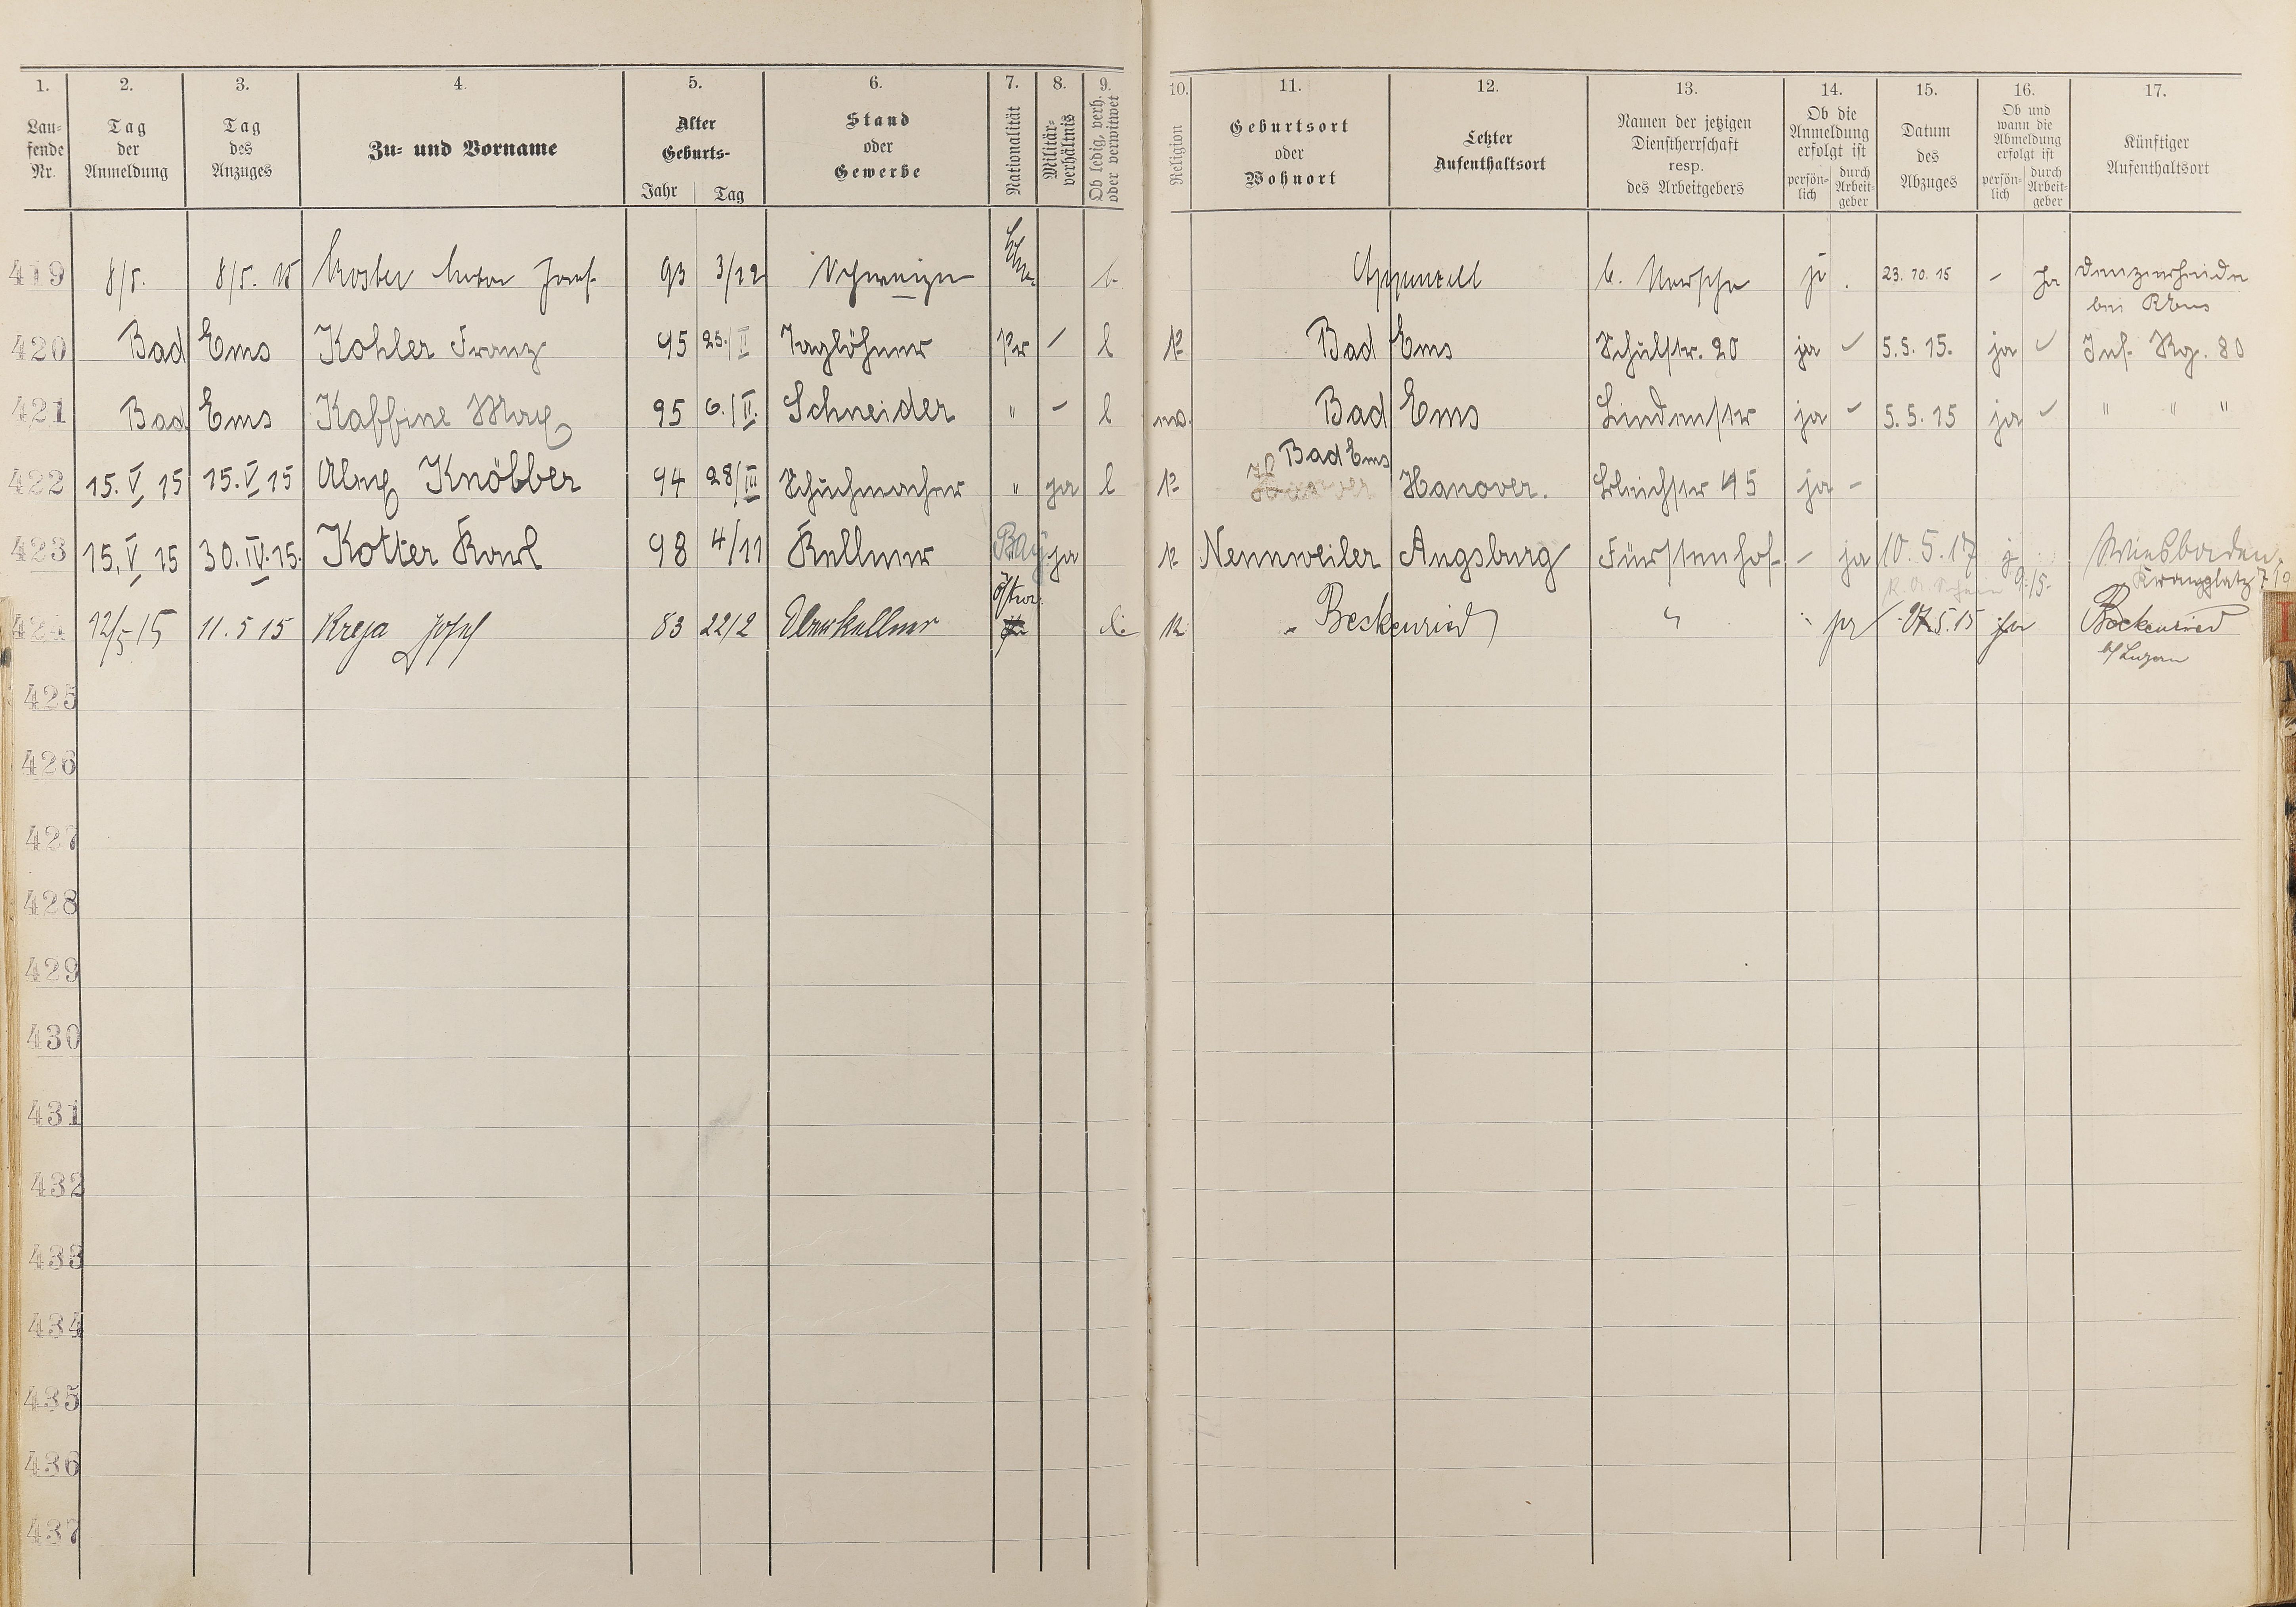 1. 2. 3. 4. 5. 6. 7. 8. 9. 10. 11. 12. 13. 14. 15. 16. 17.
Laufende Nr.
Tag der Anmeldung
Tag des Anzuges
Zu- und Vorname
Alter Geburts- Jahr Tag
Stand oder Gewerbe
Nationalität
Militärverhältnis
Ob ledig, verh. oder verwitwet
Religion
Geburtsort oder Wohnort
Letzter Aufenthaltsort
Namen der jetzigen Dienstherrschaft resp. des Arbeitgebers
Ob die Anmeldung erfolgt ist persönlich durch Arbeitgeber
Datum des Abzuges
Ob und wann die Abmeldung erfolgt ist persönlich durch Arbeitgeber
Künftiger Aufenthaltsort
419 8/5. 8/5. 15 Josef 93 3/12 Schweizer Appenzell 23.10.15 - Ja Denzerheide bei
420 Bad Ems Kohler Franz 95 25./II Taglöhner Pr - l K Bad Ems Schulstr. 20 ja 5.5.15. ja Inf. Rg. 80
421 Bad Ems Kaffine Max 95 6./II. Schneider " - l Bad Ems Lindenstr ja 5.5.15 ja " " "
422 15.V 15 15.V 15 Knöbber 94 28/III Schuhmacher " ja l K Bad Ems Hanover. 45 ja -
423 15.V 15 30.IV.15. Kotter Karl 98 4/11 Kellner Bay. ja K Nennweiler Augsburg Fürstenhof - ja 10.5.17 Wiesbaden Kranzplatz
424 12/5 15 11.5 15 Kreja Josef 83 22/2 Oberkellner K " Beckenried " " 5.15 Beckenried b/Luzern
425
426
427
428
429
430
431
432
433
434
435
436
437